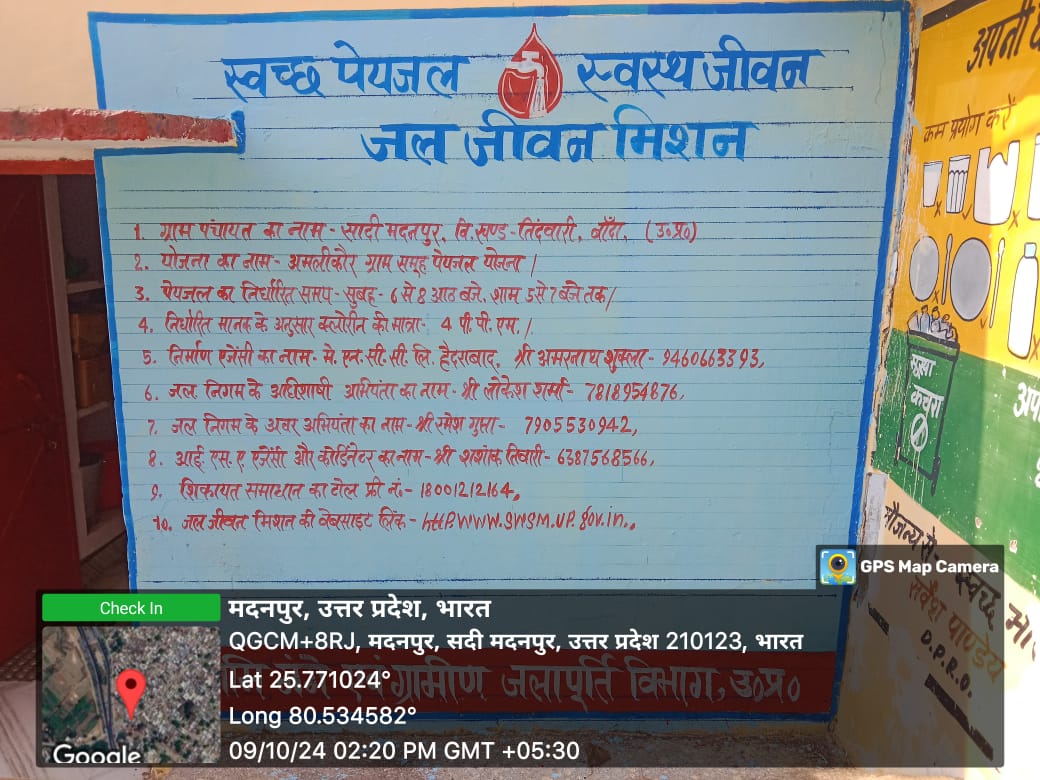 स्वच्छ पेयजल स्वस्थ जीवन
जल जीवन मिशन
1. ग्राम पंचायत का नाम - सादी मदनपुर, वि.खण्ड - तिंदवारी, बाँदा, (उ०प्र०)
2. योजना का नाम - अमलीकौर ग्राम समूह पेयजल योजना /
3. पेयजल का निर्धारित समय - सुबह - 6 से 8 आठ बजे, शाम 5 से 7 बजे तक /
4. निर्धारित मानक के अनुसार क्लोरीन की मात्रा - 4 पी. पी. एम. /
5. निर्माण एजेंसी का नाम - मे. एन. सी. सी. लि. हैदराबाद, श्री अमरनाथ शुक्ला - 9460663393,
6. जल निगम के अधिशाषी अभियंता का नाम - श्री लोकेश शर्मा - 7818954876,
7. जल निगम के अवर अभियंता का नाम - श्री रमेश गुप्ता - 7905530942,
8. आई. एस. ए एजेंसी और कोर्डिनेटर का नाम - श्री शशांक तिवारी - 6387568566,
9. शिकायत समाधान का टोल फ्री नं. - 18001212164,
10. जल जीवन मिशन की वेबसाइट लिंक - http.www.swsm.up.gov.in.,
एवं ग्रामीण जलापूर्ति विभाग, उ०प्र०
अपनी
कम प्रयोग करें
सूखा
कचरा
सौजन्य से - स्वच्छ
सर्वेश पाण्डेय
D.P.R.O.
GPS Map Camera
Check In
मदनपुर, उत्तर प्रदेश, भारत
QGCM+8RJ, मदनपुर, सदी मदनपुर, उत्तर प्रदेश 210123, भारत
Lat 25.771024°
Long 80.534582°
09/10/24 02:20 PM GMT +05:30
Google